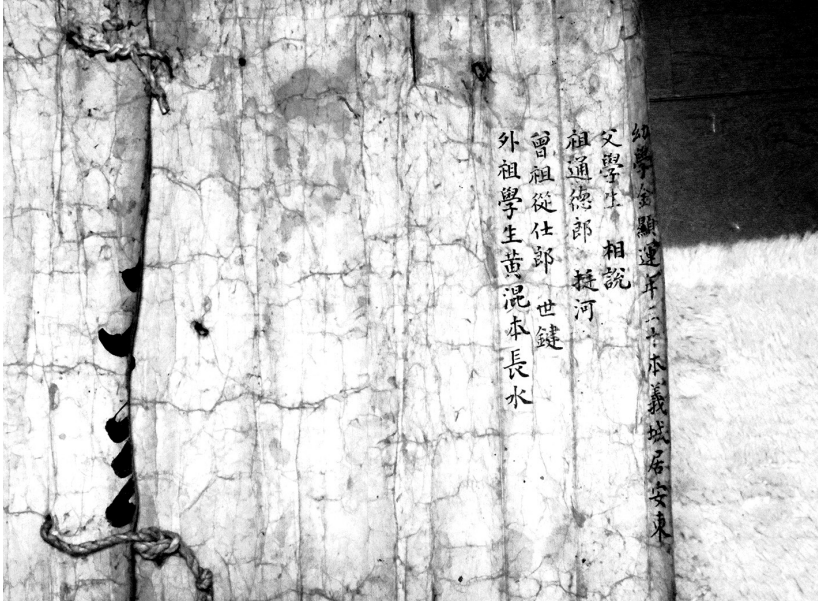 幼學金顯運年二十本義城居安東
父學生 相說
祖通德郎 挺河
曾祖從仕郎 世鍵
外祖學生黃混本長水